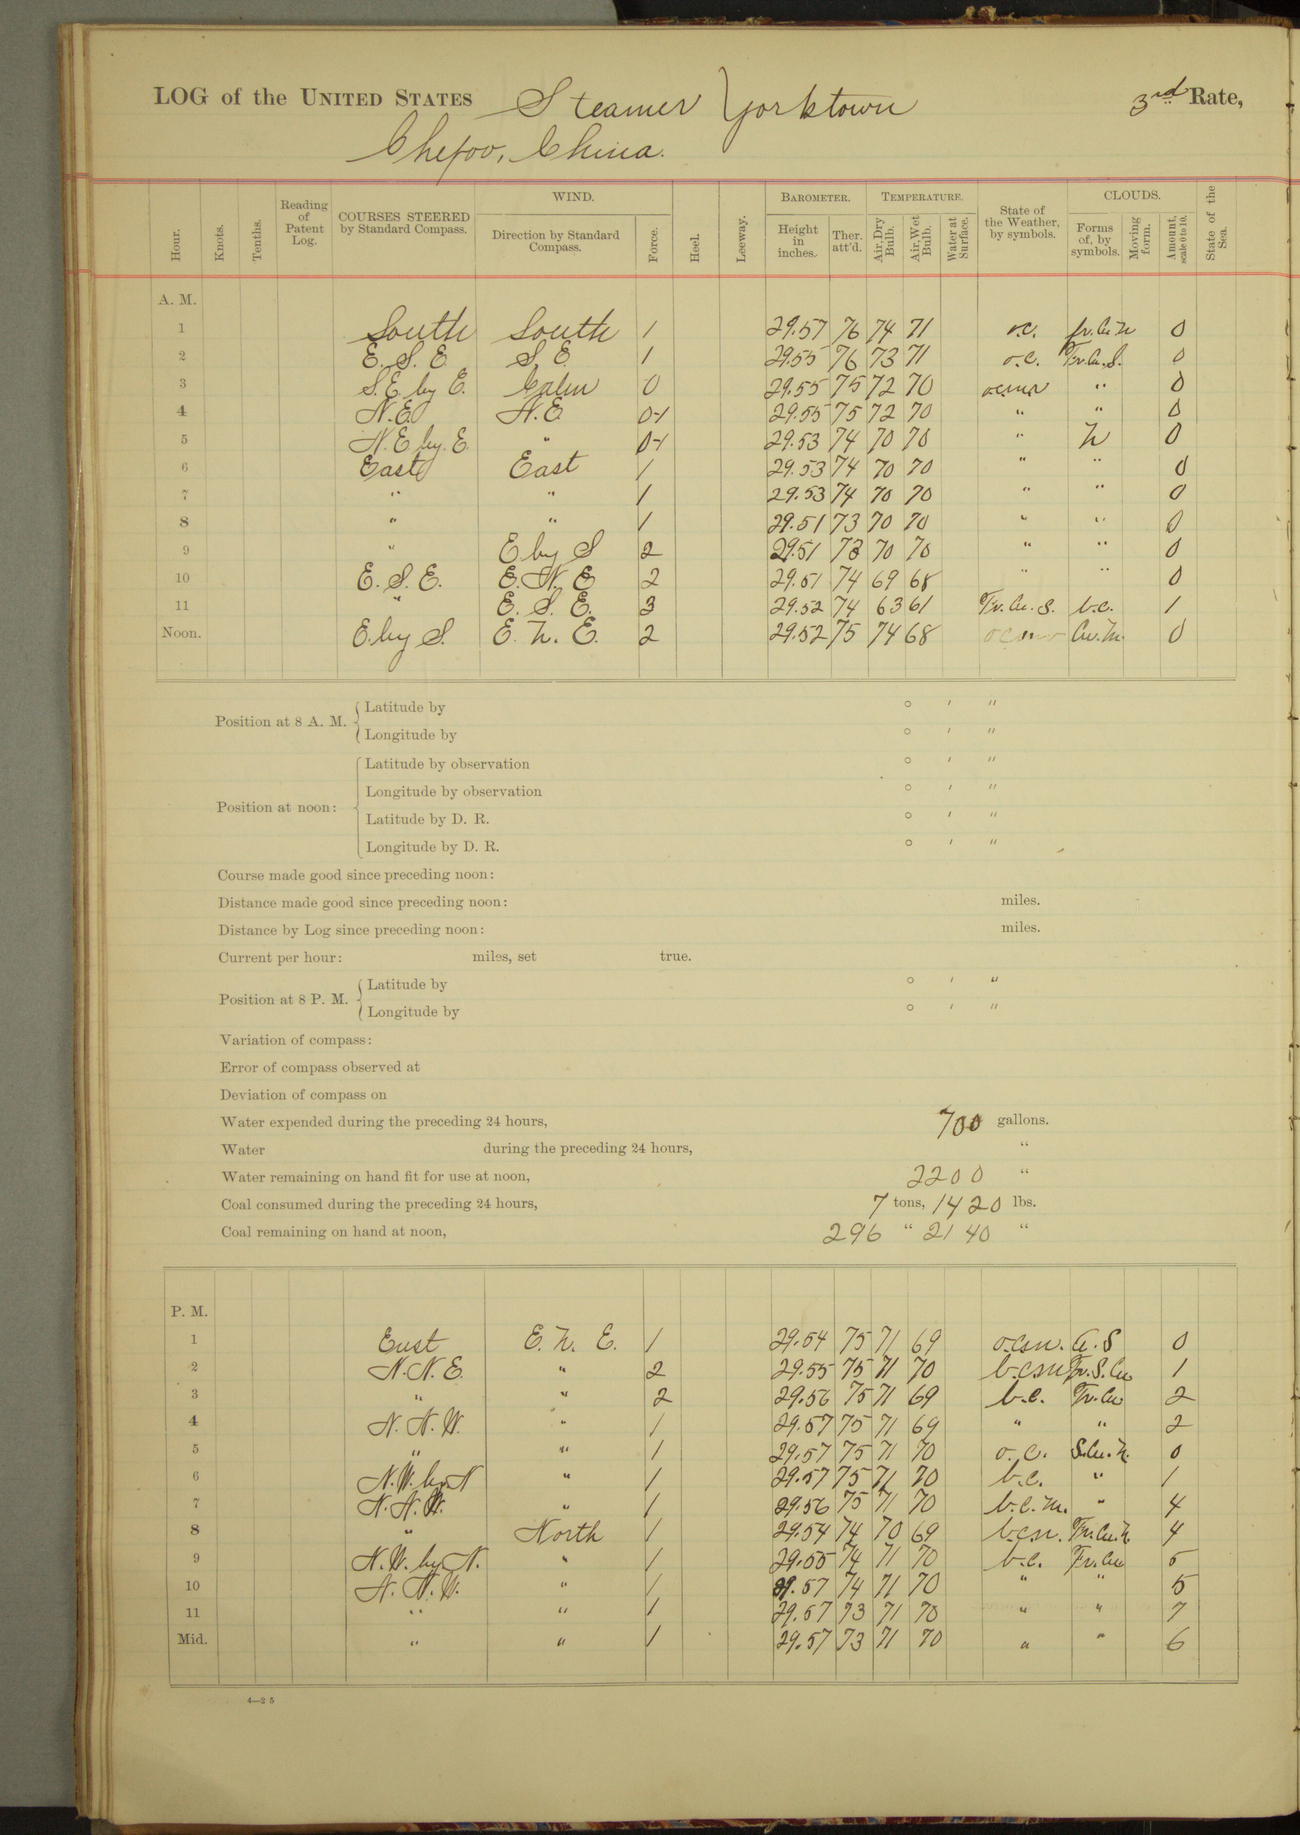 LOG of the UNITED STATES Steamer Yorktown 3rd Rate,
Chefoo, China.
Hour. Knots. Tenths. Reading of Patent Log. COURSES STEERED by Standard Compass. WIND. Direction by Standard Compass. Force. Heel. Leeway. BAROMETER. Height in inches. Ther. att'd. TEMPERATURE. Air, Dry Bulb. Air, Wet Bulb. Water at Surface. State of the Weather, by symbols. CLOUDS. Forms of, by symbols. Moving form. Amount, scale 0 to 10. State of the Sea.
A. M.
1 South South 1 29.57 76 74 71 o.c. 0
2 E. S. E. S. E. 1 29.55 76 73 71 o.c. Fr.Cu.S. 0
3 S.E. by E. Calm 0 29.55 75 72 70 " 0
4 N.E. N.E. 0-1 29.55 75 72 70 " " 0
5 N.E. by E. " 0-1 29.53 74 70 70 " N 0
6 East East 1 29.53 74 70 70 " " 0
7 " " 1 29.53 74 70 70 " " 0
8 " " 1 29.51 73 70 70 " " 0
9 " E by S 2 29.51 73 70 70 " " 0
10 E. S. E. E. N. E 2 29.51 74 69 68 " " 0
11 " E. S. E. 3 29.52 74 63 61 Fr. Cu. S. b.c. 1
Noon. E. by S. E. N. E. 2 29.52 75 74 68 Cu. N. 0
Position at 8 A. M. { Latitude by ° ′ ″
Longitude by ° ′ ″
Latitude by observation ° ′ ″
Longitude by observation ° ′ ″
Position at noon:
Latitude by D. R. ° ′ ″
Longitude by D. R. ° ′ ″
Course made good since preceding noon:
Distance made good since preceding noon: miles.
Distance by Log since preceding noon: miles.
Current per hour: miles, set true.
Position at 8 P. M. { Latitude by ° ′ ″
Longitude by ° ′ ″
Variation of compass:
Error of compass observed at
Deviation of compass on
Water expended during the preceding 24 hours, 700 gallons.
Water during the preceding 24 hours, "
Water remaining on hand fit for use at noon, 2200 "
Coal consumed during the preceding 24 hours, 7 tons, 1420 lbs.
Coal remaining on hand at noon, 296 " 2140 "
P. M.
1 East E. N. E. 1 29.54 75 71 69 0
2 N.N.E. " 2 29.55 75 71 70 Fr.S.Cu 1
3 " " 2 29.56 75 71 69 b.c. Fr.Cu 2
4 N. N. W. " 1 29.57 75 71 69 " " 2
5 " " 1 29.57 75 71 70 o.c. S.Cu.N. 0
6 N.W. by N " 1 29.57 75 71 70 b.c. " 1
7 N. N. W. " 1 29.56 75 71 70 b.c.m. " 4
8 " North 1 29.54 74 70 69 b.c.m. Fr.Cu.N. 4
9 N.W. by N. " 1 29.55 74 71 70 b.c. Fr.Cu 5
10 N. N. W. " 1 29.57 74 71 70 " " 5
11 " " 1 29.57 73 71 70 " " 7
Mid. " " 1 29.57 73 71 70 " " 6
4—25